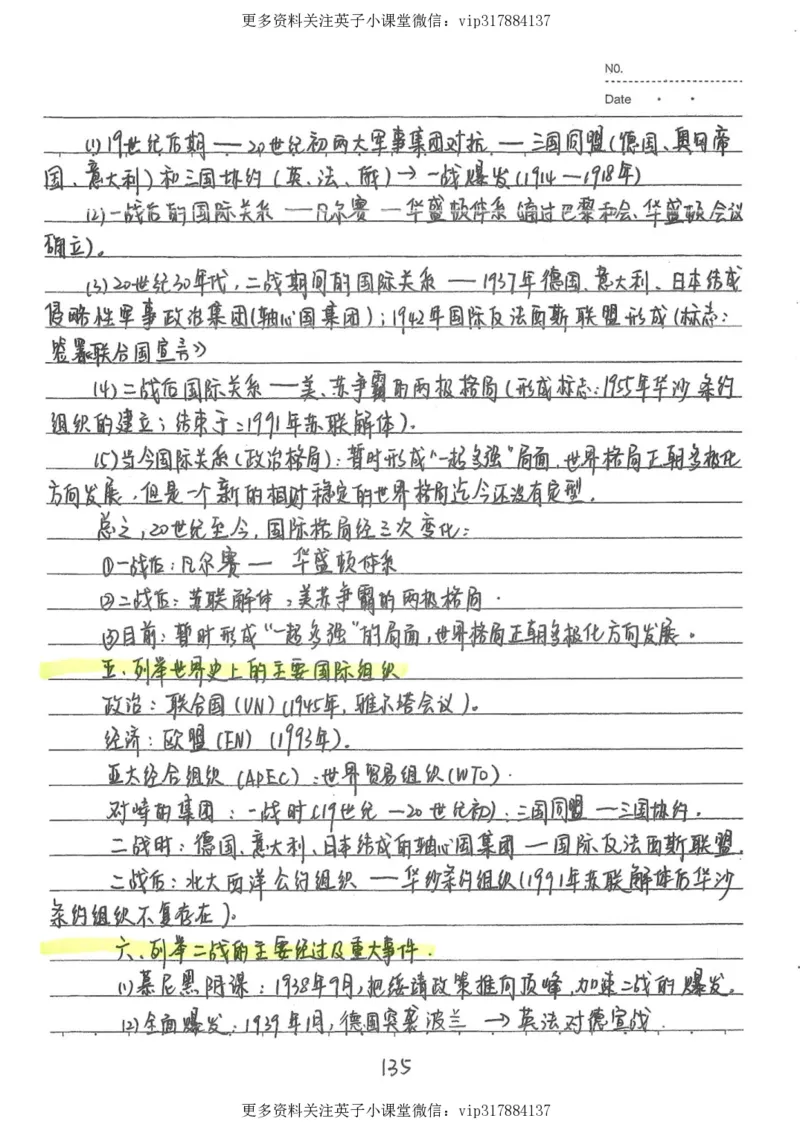 更多资料关注英子小课堂微信：vip317884137
NO.
Date
(1)19世纪后期——20世纪初两大军事集团对抗——三国同盟(德国、奥匈帝
国、意大利)和三国协约(英、法、俄)→一战爆发(1914—1918年)
(2)一战后的国际关系——凡尔赛—华盛顿体系(通过巴黎和会、华盛顿会议
确立)。
(3)20世纪30年代，二战期间的国际关系——1937年德国、意大利、日本结成
侵略性军事政治集团(轴心国集团)；1942年国际反法西斯联盟形成(标志：
签署联合国宣言》)
(4)二战后国际关系——美、苏争霸的两极格局(形成标志：1955年华沙条约
组织的建立；结束于：1991年苏联解体)。
(5)当今国际关系(政治格局)：暂时形成“一超多强”局面，世界格局正朝多极化
方向发展，但是一个新的相对稳定的世界格局迄今还没有定型。
总之，20世纪至今，国际格局经三次变化：
①一战后：凡尔赛—华盛顿体系
②二战后：苏联解体；美苏争霸的两极格局.
③目前：暂时形成“一超多强”的局面，世界格局正朝多极化方向发展。
五、列举世界史上的主要国际组织
政治：联合国(UN)(1945年，雅尔塔会议)。
经济：欧盟(EN)(1993年)。
亚太经合组织(APEC)；世界贸易组织(WTO).
对峙的集团：一战时(19世纪—20世纪初)：三国同盟—三国协约.
二战时：德国、意大利、日本结成的轴心国集团—国际反法西斯联盟.
二战后：北大西洋公约组织——华约条约组织(1991年苏联解体后华沙
条约组织不复存在)。
六、列举二战的主要经过及重大事件.
(1)慕尼黑阴谋：1938年9月，把绥靖政策推向顶峰，加速二战的爆发。
(2)全面爆发：1939年1月，德国突袭波兰→英法对德宣战.
135
更多资料关注英子小课堂微信：vip317884137